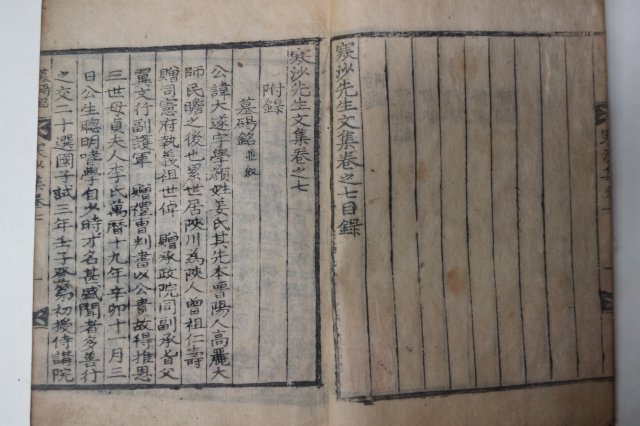 寒沙先生文集卷之七目錄
寒沙先生文集卷之七
附錄
墓碣銘 並叙
公諱大遂字學顔姓姜氏其先本晉陽人高麗大
師民瞻之後也累世居陜川為陜人曾祖仁壽
贈司憲府執義祖世倬 贈承政院同副承旨父
翼文行副護軍 贈禮曹判書以公貴故得推恩
三世母貞夫人李氏萬曆十九年辛卯十一月三
日公生聰明嗜學自少時才名甚盛聞者多善行
之交二十選國子試三年壬子登第初授侍講院
墓碣銘
寒沙集卷七
寒沙集卷七